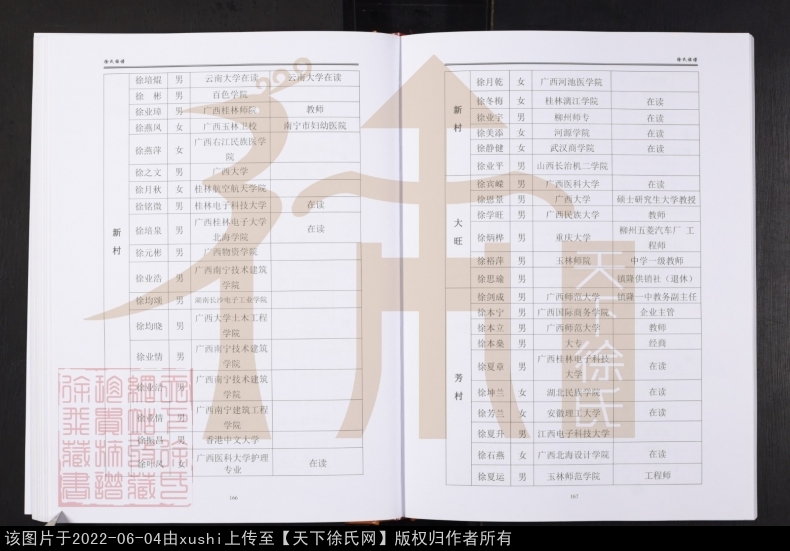 徐氏族谱
新村
徐培焜 男 云南大学在读 云南大学在读
徐 彬 男 百色学院
徐业璋 男 广西桂林师院 教师
徐燕凤 女 广西玉林卫校 南宁市妇幼医院
徐燕萍 女 广西右江民族医学
院
徐之文 男 广西大学
徐月秋 女 桂林航空航天学院
徐铭微 男 桂林电子科技大学 在读
徐培泉 男 广西桂林电子大学
北海学院 在读
徐元彬 男 广西物资学院
徐业浩 男 广西南宁技术建筑
学院
徐均颂 男 湖南长沙电子工业学院
徐均晓 男 广西大学土木工程
学院
徐业情 男 广西南宁技术建筑
学院
徐业浩 男 广西南宁技术建筑
学院
情 男 广西南宁建筑工程
学院
徐振昌 男 香港中文大学
徐叶凤 女 广西医科大学护理
专业 在读
166
徐氏族谱
新村
徐月乾 女 广西河池医学院
徐冬梅 女 桂林漓江学院 在读
徐业宇 男 柳州师专 在读
徐美添 女 河源学院 在读
徐静健 女 武汉商学院 在读
徐业平 男 山西长治机二学院
大旺
徐宾嵘 男 广西医科大学 在读
徐恩景 男 广西大学 硕士研究生大学教授
徐学旺 男 广西民族大学 教师
徐炳桦 男 重庆大学 柳州五菱汽车厂 工
程师
徐裕萍 男 玉林师院 中学一级教师
徐思瑜 男 镇隆供销社(退休)
芳村
徐剑成 男 广西师范大学 镇隆一中教务副主任
徐本宁 男 广西国际商务学院 企业主管
徐本立 男 广西师范大学 教师
徐本燊 男 大专 经商
徐夏章 男 广西桂林电子科技
大学 在读
徐坤兰 女 湖北民族学院 在读
徐芳兰 女 安徽理工大学 在读
徐夏升 男 江西电子科技大学
徐石燕 女 广西北海设计学院 在读
徐夏运 男 玉林师范学院 工程师
167
天下徐氏
该图片于2022-06-04由xushi上传至【天下徐氏网】版权归作者所有